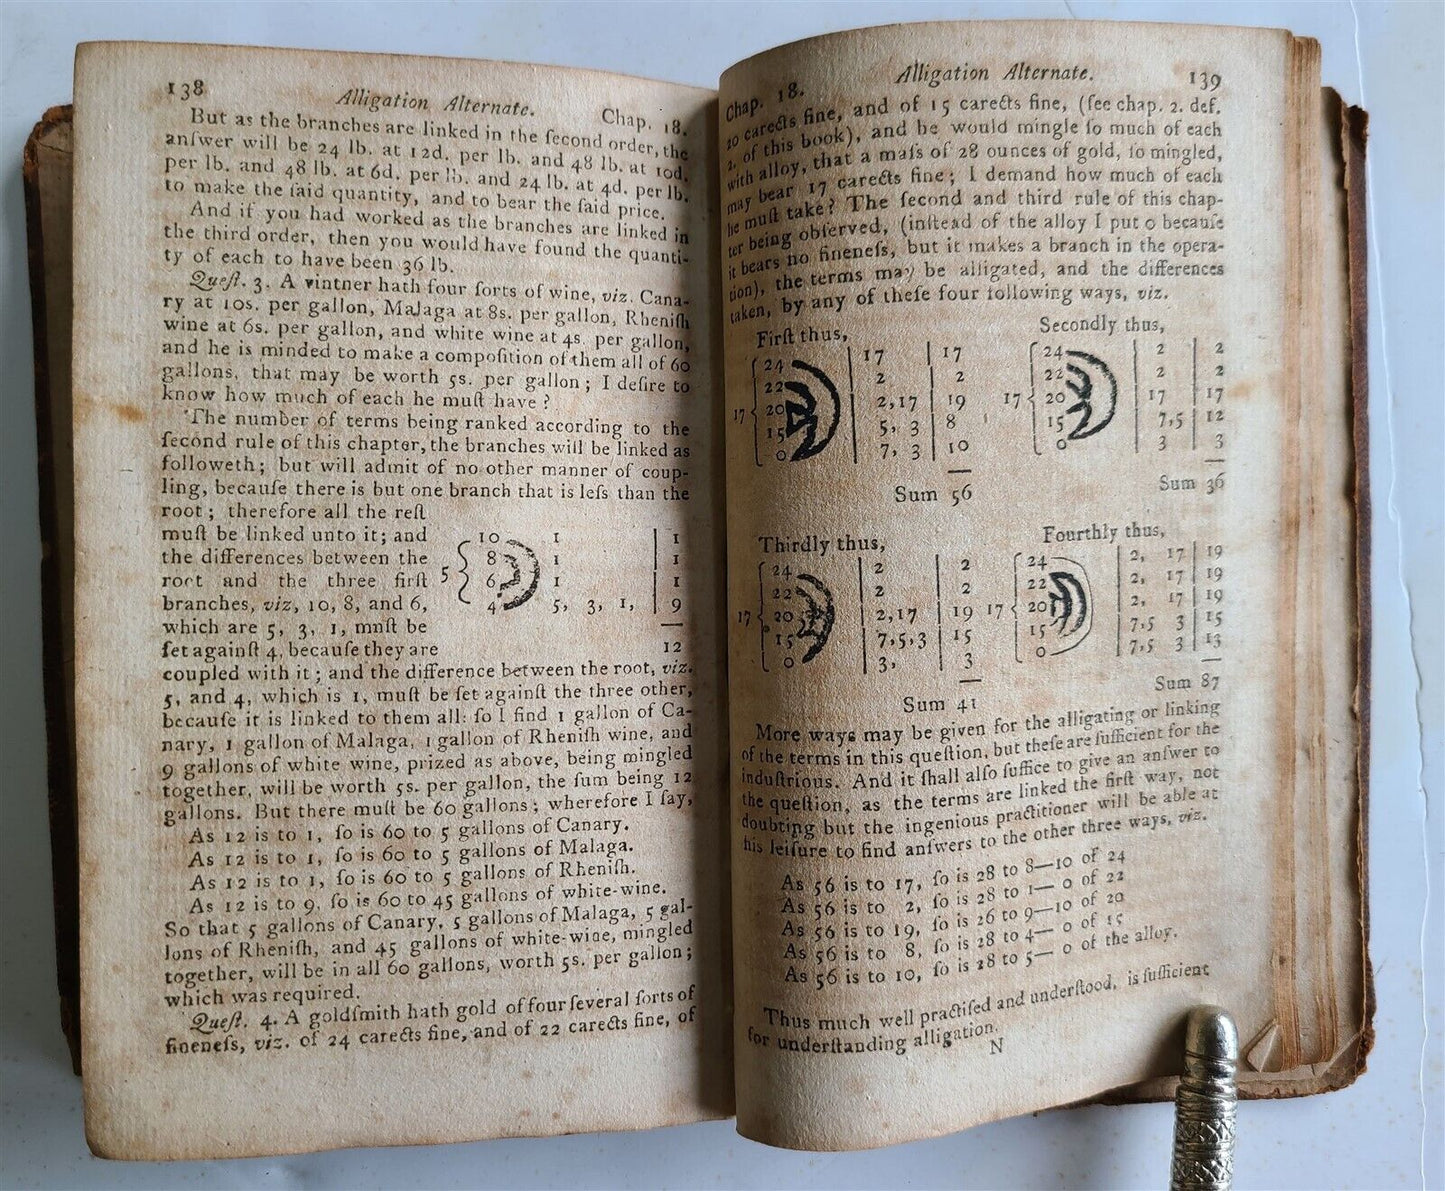 138
Alligation Alternate. Chap. 18.
But as the branches are linked in the ſecond order, the
anſwer will be 24 lb. at 12d. per lb. and 48 lb. at 10d.
per lb. and 48 lb. at 6d. per lb. and 24 lb. at 4d. per lb.
to make the ſaid quantity, and to bear the ſaid price.
And if you had worked as the branches are linked in
the third order, then you would have found the quanti-
ty of each to have been 36 lb.
Queſt. 3. A vintner hath four ſorts of wine, viz. Cana-
ry at 10s. per gallon, Malaga at 8s. per gallon, Rheniſh
wine at 6s. per gallon, and white wine at 4s. per gallon,
and he is minded to make a compoſition of them all of 60
gallons, that may be worth 5s. per gallon; I deſire to
know how much of each he muſt have?
The number of terms being ranked according to the
ſecond rule of this chapter, the branches will be linked as
followeth; but will admit of no other manner of coup-
ling, becauſe there is but one branch that is leſs than the
root; therefore all the reſt
muſt be linked unto it; and
the differences between the
root and the three firſt
branches, viz, 10, 8, and 6,
which are 5, 3, 1, muſt be
ſet againſt 4, becauſe they are
10 1 1
8 1 1
5 6 1 1
4 5, 3, 1, 9
12
coupled with it; and the difference between the root, viz.
5, and 4, which is 1, muſt be ſet againſt the three other,
becauſe it is linked to them all: ſo I find 1 gallon of Ca-
nary, 1 gallon of Malaga, 1 gallon of Rheniſh wine, and
9 gallons of white wine, prized as above, being mingled
together, will be worth 5s. per gallon, the ſum being 12
gallons. But there muſt be 60 gallons; wherefore I ſay,
As 12 is to 1, ſo is 60 to 5 gallons of Canary.
As 12 is to 1, ſo is 60 to 5 gallons of Malaga.
As 12 is to 1, ſo is 60 to 5 gallons of Rheniſh.
As 12 is to 9, ſo is 60 to 45 gallons of white-wine.
So that 5 gallons of Canary, 5 gallons of Malaga, 5 gal-
lons of Rheniſh, and 45 gallons of white-wine, mingled
together, will be in all 60 gallons, worth 5s. per gallon;
which was required.
Queſt. 4. A goldſmith hath gold of four ſeveral ſorts of
fineneſs, viz. of 24 carects fine, and of 22 carects fine, of
Chap. 18. Alligation Alternate. 139
20 carects fine, and of 15 carects fine, (ſee chap. 2. def.
2. of this book), and he would mingle ſo much of each
with alloy, that a maſs of 28 ounces of gold, ſo mingled,
may bear 17 carects fine; I demand how much of each
he muſt take? The ſecond and third rule of this chap-
ter being obſerved, (inſtead of the alloy I put 0 becauſe
it bears no fineneſs, but it makes a branch in the opera-
tion), the terms may be alligated, and the differences
taken, by any of theſe four following ways, viz.
Firſt thus,
24 17 17
22 2 2
17 20 2,17 19
15 5, 3 8
0 7, 3 10
Sum 56
Secondly thus,
24 2 2
22 2 2
17 20 17 17
15 7,5 12
0 3 3
Sum 36
Thirdly thus,
24 2 2
22 2 2
17 20 2,17 19
15 7,5,3 15
0 3, 3
Sum 41
Fourthly thus,
24 2, 17 19
22 2, 17 19
17 20 2, 17 19
15 7,5 3 15
0 7,5 3 13
Sum 87
More ways may be given for the alligating or linking
of the terms in this queſtion, but theſe are ſufficient for the
induſtrious. And it ſhall alſo ſuffice to give an anſwer to
the queſtion, as the terms are linked the firſt way, not
doubting but the ingenious practitioner will be able at
his leiſure to find anſwers to the other three ways, viz.
As 56 is to 17, ſo is 28 to 8—10 of 24
As 56 is to 2, ſo is 28 to 1— 0 of 22
As 56 is to 19, ſo is 26 to 9—10 of 20
As 56 is to 8, ſo is 28 to 4— 0 of 15
As 56 is to 10, ſo is 28 to 5— 0 of the alloy.
Thus much well practiſed and underſtood, is ſufficient
for underſtanding alligation.
N